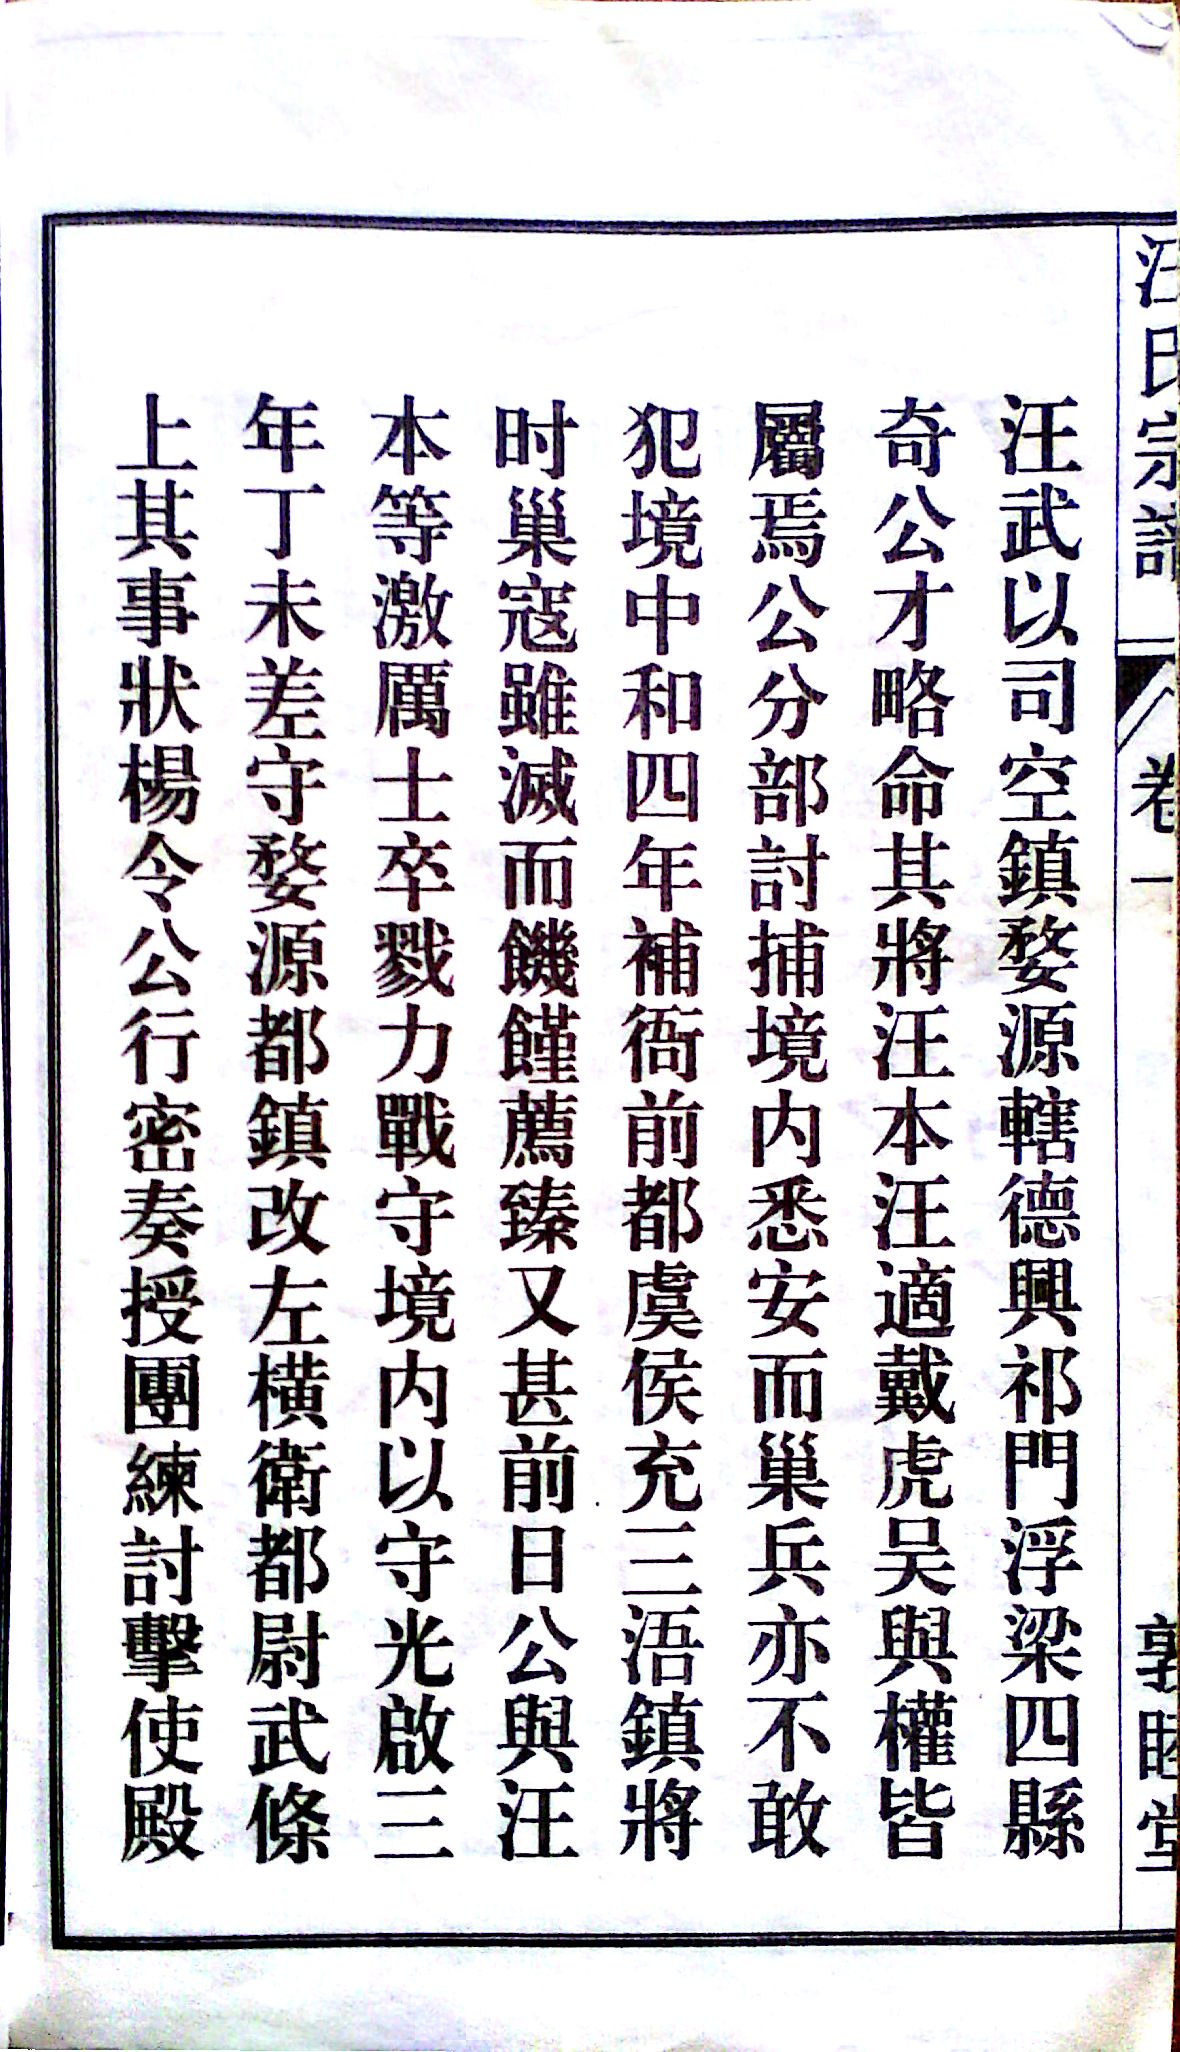 汪氏宗譜
卷一
敦睦堂
汪武以司空鎮婺源轄德興祁門浮梁四縣
奇公才略命其將汪本汪適戴虎吴與權皆
屬焉公分部討捕境内悉安而巢兵亦不敢
犯境中和四年補衙前都虞侯充三浯鎮將
时巢寇雖滅而饑饉薦臻又甚前日公與汪
本等激厲士卒戮力戰守境内以守光啟三
年丁未差守婺源都鎮改左横衛都尉武條
上其事狀楊令公行密奏授團練討擊使殿